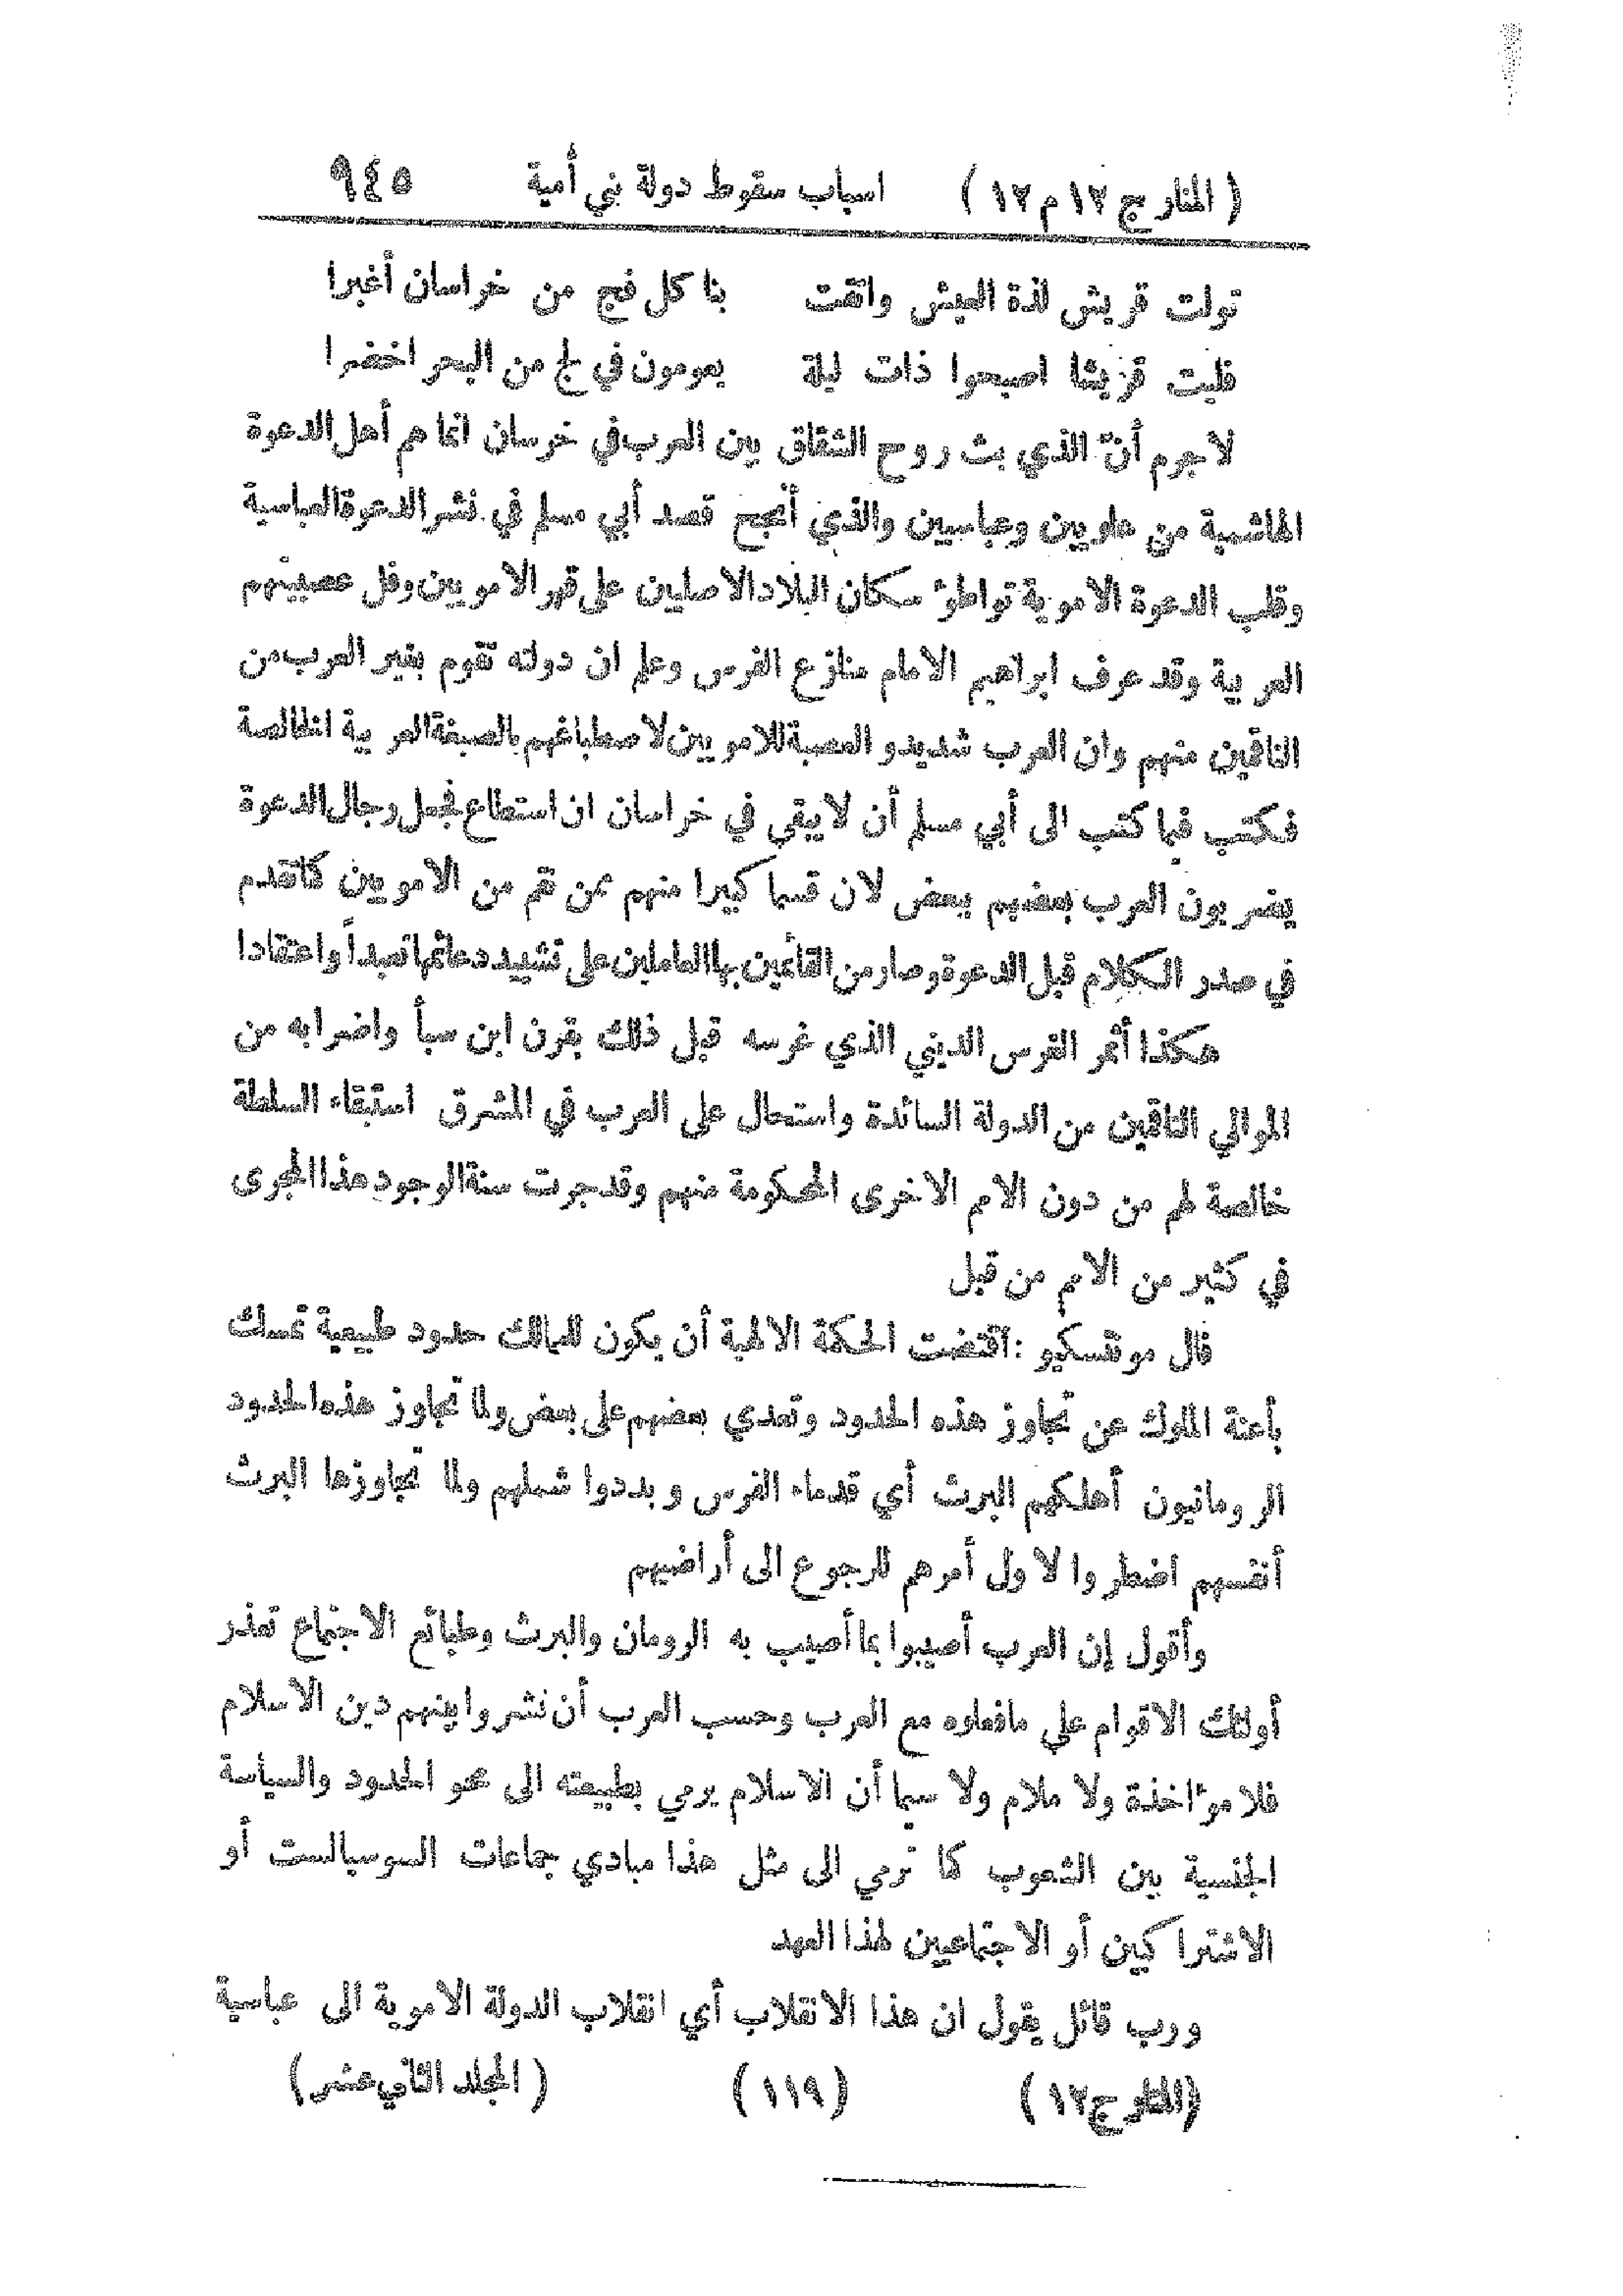 ( المنار ج ١٢ م ١٢ ) اسباب سقوط دولة بني أمية ٩٤٥
تولت قريش لذة العيش واتقت بنا كل فج من خراسان أغبرا
فليت قريشا اصبحوا ذات ليلة يعومون في لج من البحر اخضرا
لا جرم أنّ الذي بث روح الشقاق بين العرب في خرسان انما هم أهل الدعوة
الهاشمية من علويين وعباسيين والذي أنجح قصد أبي مسلم في نشر الدعوة العباسية
وقلب الدعوة الاموية تواطؤ سكان البلاد الاصليين على قهر الامويين وفل عصبيتهم
العربية وقد عرف ابراهيم الامام منازع الفرس وعلم ان دولته تقوم بغير العرب من
الناقمين منهم وان العرب شديدو العصبة للامويين لاصطباغهم بالصبغة العربية الخالصة
فكتب فيما كتب الى أبي مسلم أن لا يبقي في خراسان ان استطاع فجعل رجال الدعوة
يضربون العرب بعضهم ببعض لان قسما كبيرا منهم ممن نقم من الامويين كما تقدم
في صدر الكلام قبل الدعوة وصار من القائمين بها العاملين على تشييد دعائمها تعبداً واعتقادا
هكذا أثمر الغرس الديني الذي غرسه قبل ذلك بقرن ابن سبأ واضرابه من
الموالي الناقمين من الدولة السائدة واستحال على العرب في المشرق استبقاء السلطة
خالصة لهم من دون الامم الاخرى المحكومة منهم وقد جرت سنة الوجود هذا المجرى
في كثير من الامم من قبل
قال مونتسكيو : اقتضت الحكمة الالهية أن يكون للممالك حدود طبيعية تمسك
بأعنة الملوك عن تجاوز هذه الحدود وتعدي بعضهم على بعض ولما تجاوز هذه الحدود
الرومانيون أهلكهم البرث أي قدماء الفرس وبددوا شملهم ولما تجاوزها البرث
أنفسهم اضطروا لاول أمرهم للرجوع الى أراضيهم
وأقول إن العرب أصيبوا بما أصيب به الرومان والبرث وطبائع الاجتماع تعذر
أولئك الاقوام على ما فعلوه مع العرب وحسب العرب أن نشروا بينهم دين الاسلام
فلا مؤاخذة ولا ملام ولا سيما أن الاسلام يرمي بطبيعته الى محو الحدود والسياسة
الجنسية بين الشعوب كما ترمي الى مثل هذا مبادي جماعات السوسيالست أو
الاشتراكيين أو الاجتماعيين لهذا العهد
ورب قائل يقول ان هذا الانقلاب أي انقلاب الدولة الاموية الى عباسية
(المنار ج ١٢ ) ( ١١٩ ) ( المجلد الثاني عشر )